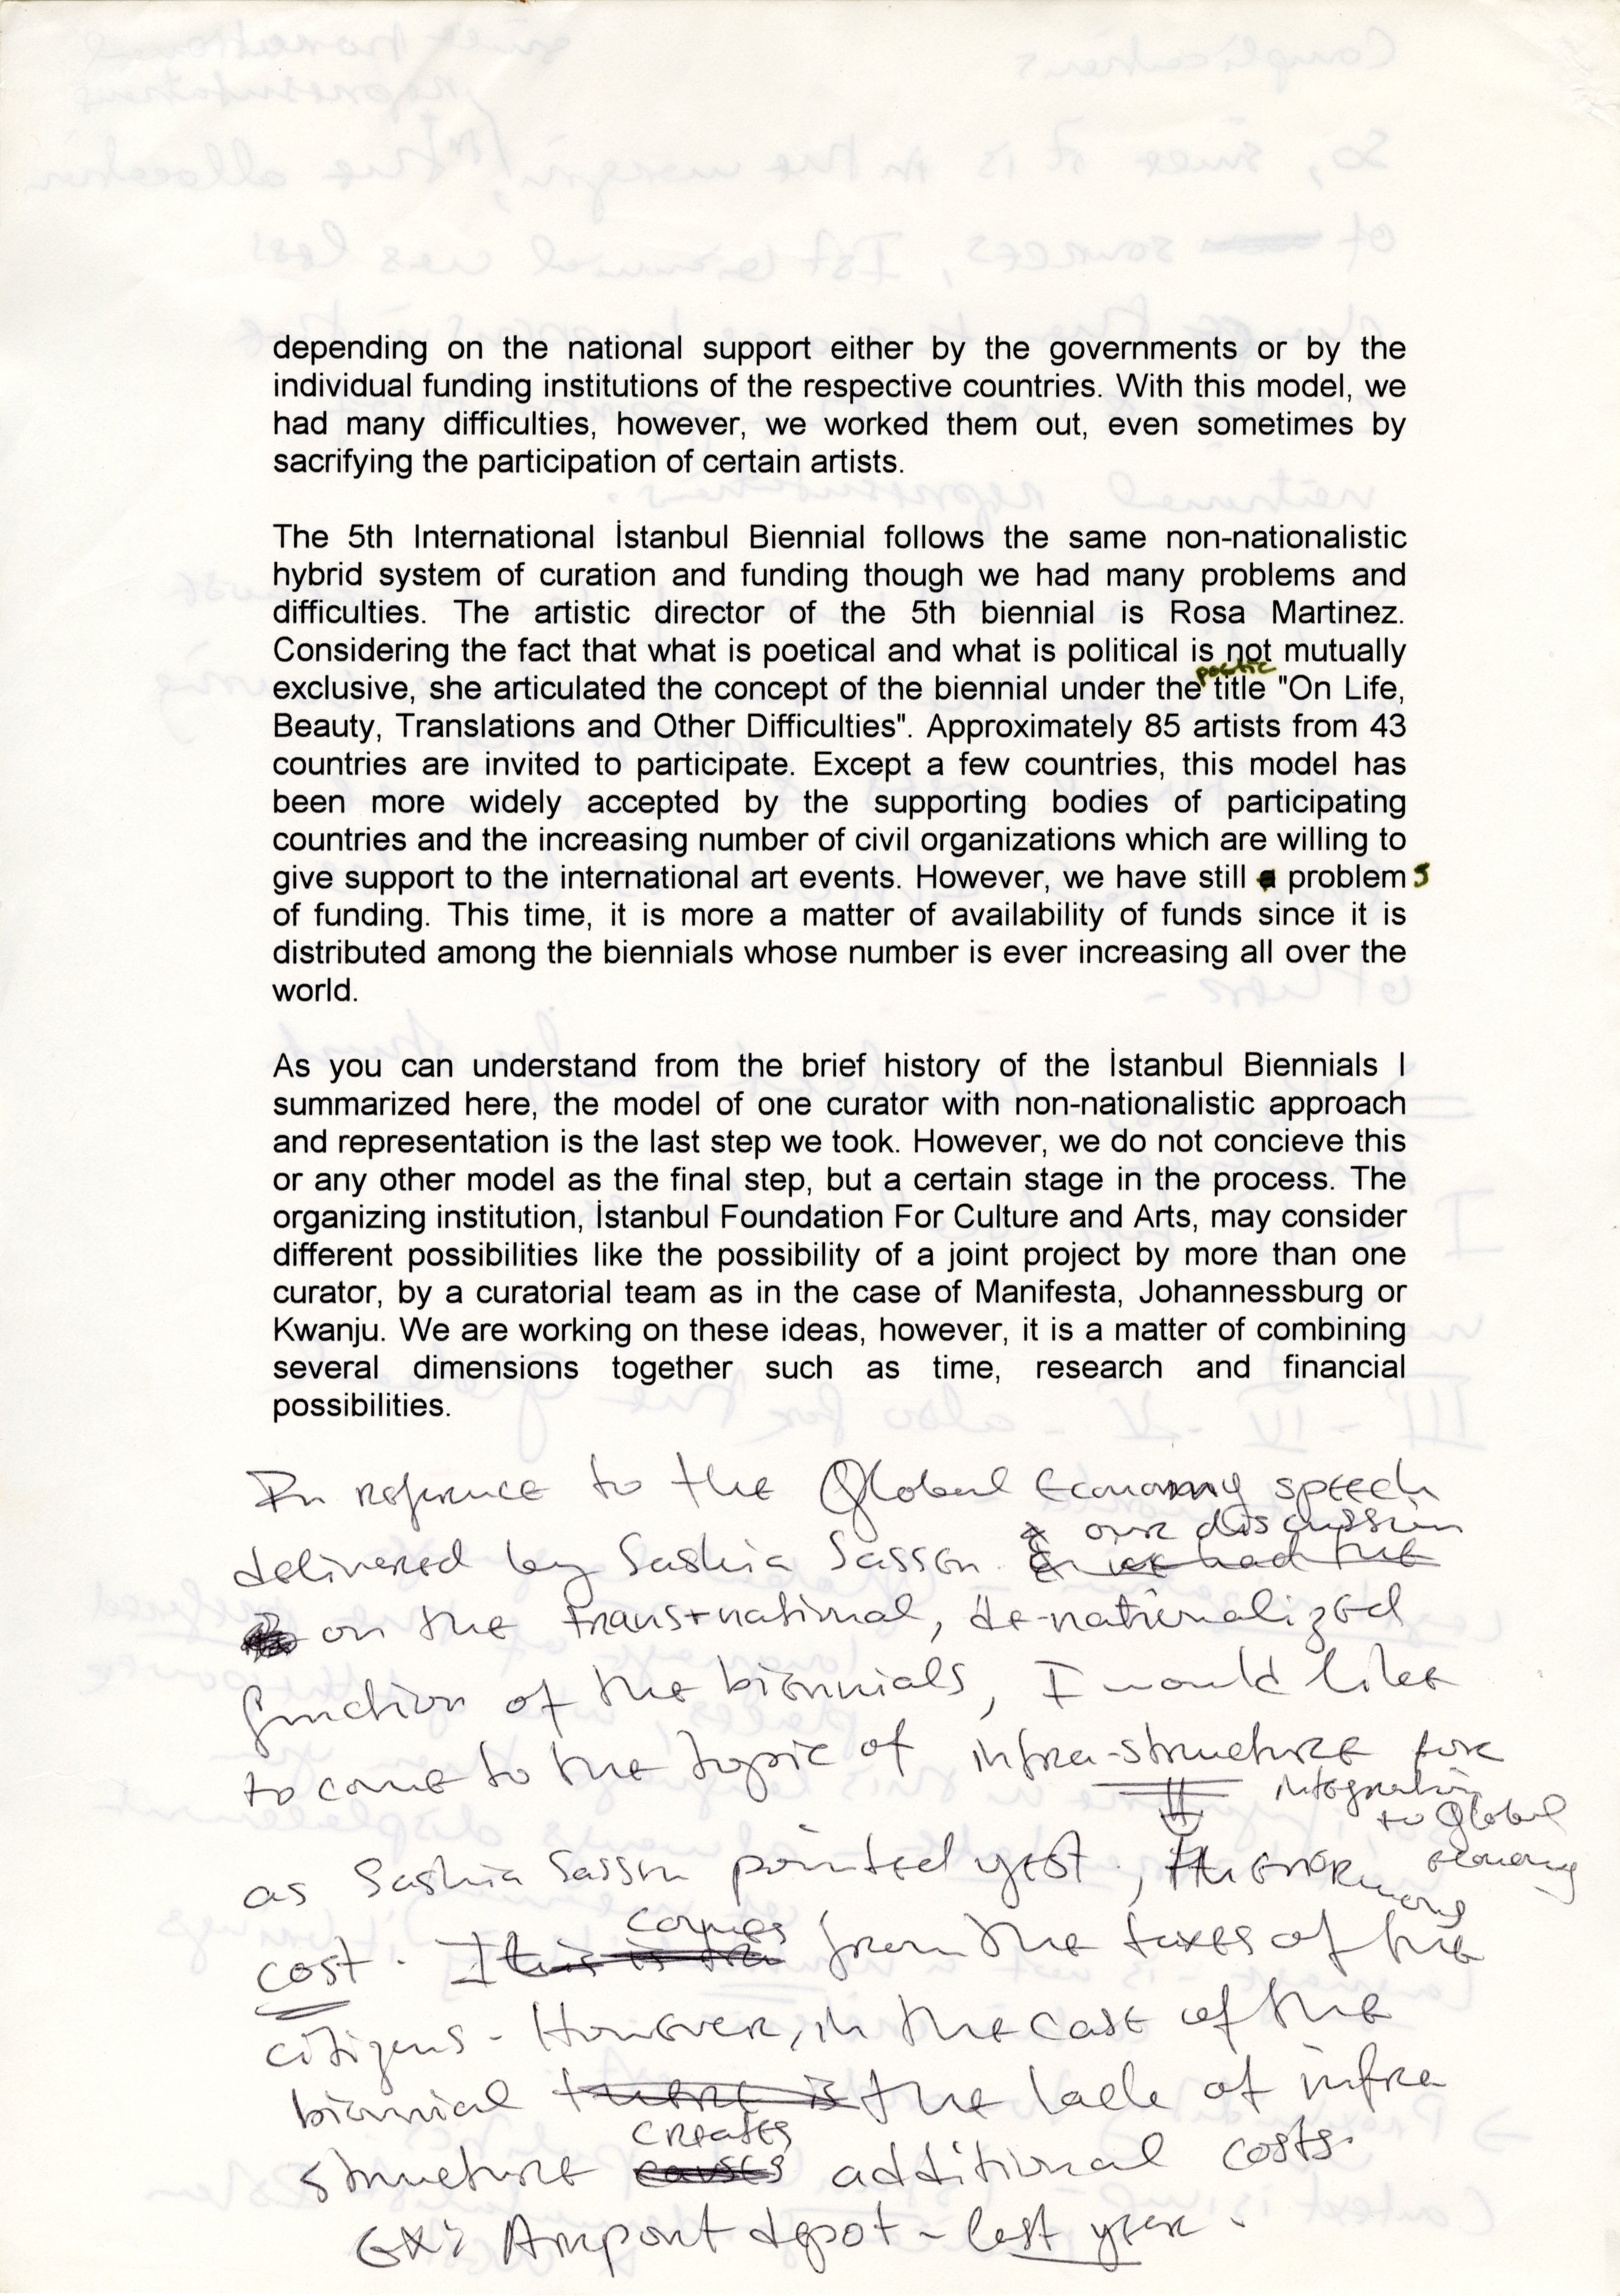 depending on the national support either by the governments or by the
individual funding institutions of the respective countries. With this model, we
had many difficulties, however, we worked them out, even sometimes by
sacrifying the participation of certain artists.
The 5th International İstanbul Biennial follows the same non-nationalistic
hybrid system of curation and funding though we had many problems and
difficulties. The artistic director of the 5th biennial is Rosa Martinez.
Considering the fact that what is poetical and what is political is not mutually
poetic
exclusive, she articulated the concept of the biennial under the title "On Life,
Beauty, Translations and Other Difficulties". Approximately 85 artists from 43
countries are invited to participate. Except a few countries, this model has
been more widely accepted by the supporting bodies of participating
countries and the increasing number of civil organizations which are willing to
give support to the international art events. However, we have still a problems
of funding. This time, it is more a matter of availability of funds since it is
distributed among the biennials whose number is ever increasing all over the
world.
As you can understand from the brief history of the İstanbul Biennials I
summarized here, the model of one curator with non-nationalistic approach
and representation is the last step we took. However, we do not concieve this
or any other model as the final step, but a certain stage in the process. The
organizing institution, İstanbul Foundation For Culture and Arts, may consider
different possibilities like the possibility of a joint project by more than one
curator, by a curatorial team as in the case of Manifesta, Johannessburg or
Kwanju. We are working on these ideas, however, it is a matter of combining
several dimensions together such as time, research and financial
possibilities.
In reference to the Global Economy speech
& our discussion
delivered by Saskia Sassen we had the
on the trans+national, de-nationalized
function of the biennials, I would like
to come to the topic of infra-structure for
integration
to Global
economy
as Saskia Sassen pointed yest, the enormous
comes
cost. It is from the taxes of the
citizens - However, in the case of the
biennial there is the lack of infra
creates
structure causes additional costs.
Ex: Airport depot - last year.